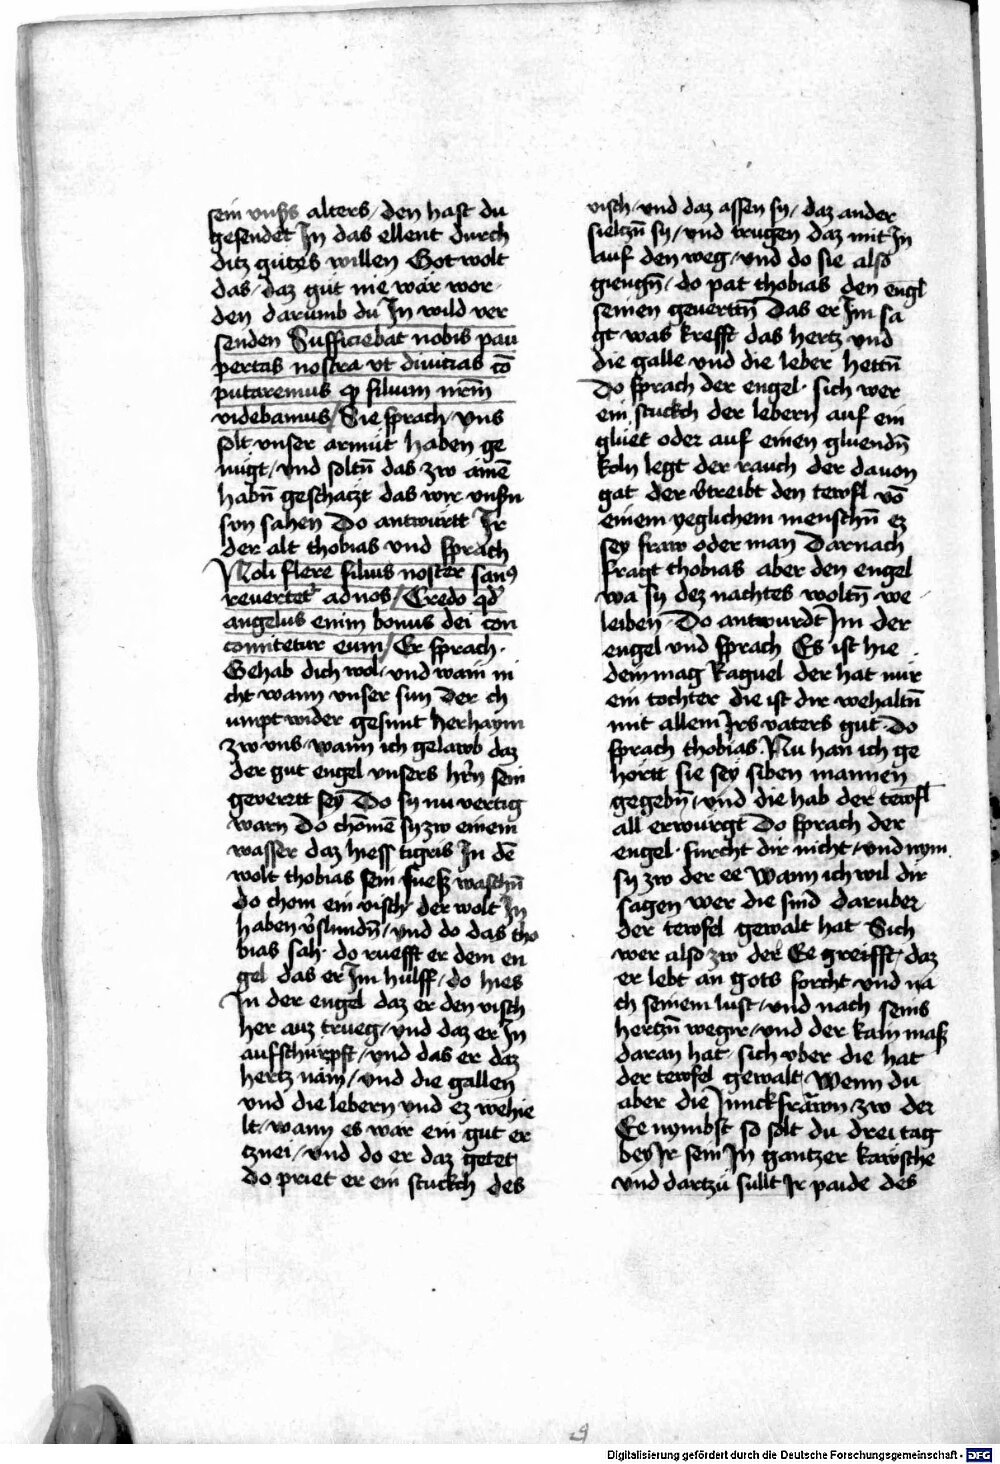 sein vnsers alters / den hast du
gesendet In das ellent durch
ditz gůtes willen Got wolt
das / daz gůt nie wär wor
den darumb du In wild ver
senden Sufficiebat nobis pau
pertas nostra vt diuicias cō
putaremus ꝙ filium nr̄m
videbamus / Sie sprach / vns
solt vnser armůt haben ge
nůgt / vnd soltn̄ das zw ainē
habn̄ geschäczt das wir vnsn̄
sun sahen Do antwurtt Ir
der alt thobias vnd sprach
Noli flere filius noster san9
reuertet᷑ ad nos / Credo qd᷑
angelus enim bonus dei con
comitetur eum / Er sprach ·
Gehab dich wol / vnd wain ni
cht wann vnser sun der ch
umpt wider gesunt her haym
zw vns / wann ich gelawb daz
der gut engel vnsers hr̄n sein
geuerett sey Do sy nu vertig
warn Do chomē sy zw einem
wasser daz hiess tigris In dē
wolt thobias sein fuess waschn̄
do chom ein visch der wolt In
haben v᷑slundn̄ / vnd do das tho
bias sah · do ruefft er dem en
gel das er Im hulff / do hies
In der engel daz er den visch
her auz trueg / vnd daz er In
aufschürpft / vnd das er daz
hertz näm / vnd die gallen
vnd die lebern vnd ez wehie
lt / wann es wär ein gut er
cznei / vnd do er daz getet
do priet er ein stuckch des
visch / vnd daz assen sy / daz ander
sielczn̄ sy / vnd trugen daz mit In
auf den weg / vnd do sie also
giengn̄ / do pat thobias den engl
seinen geuerttn̄ Das er Im sa
gt was krefft das hertz vnd
die galle vnd die leber hettn̄
Do sprach der engel · sich wer
ein stuckch der lebern auf ein
gluet oder auf einen gluendn̄
koln legt der rauch der dauon
gat der v᷑treibt den tewfl vō
einem yeglichem menschn̄ ez
sey fraw oder man Darnach
fragt thobias aber den engel
wa sy dez nachtes woltn̄ we
leiben · Do antwurdt Im der
engel vnd sprach Es ist hie
dein mag Raguel der hat nür
ein tochter die ist dir wehaltn̄
mit allem Irs vaters gut · Do
sprach thobias · Nu han ich ge
hörtt sie sey siben mannen
gegebn̄ / vnd die hab der tewfl
all erwurgt Do sprach der
engel · furcht dir nicht / vnd nym
sy zw der ee Wann ich wil dir
sagen wer die sind daruber
der tewfel gewalt hat Sich
wer also zw der Ee greifft daz
er lebt an gots forcht vnd na
ch seinem lust / vnd nach seins
hertzn̄ wegir / vnd der kain mass
daran hat sich vber die hat
der tewfel gewalt Wenn du
aber die Iunckfrawn zw der
Ee nymbst so solt du drei tag
bey Ir sein In gantzer kawsche
vnd dartzu sullt Ir paide des
Digitalisierung gefördert durch die Deutsche Forschungsgemeinschaft - DFG